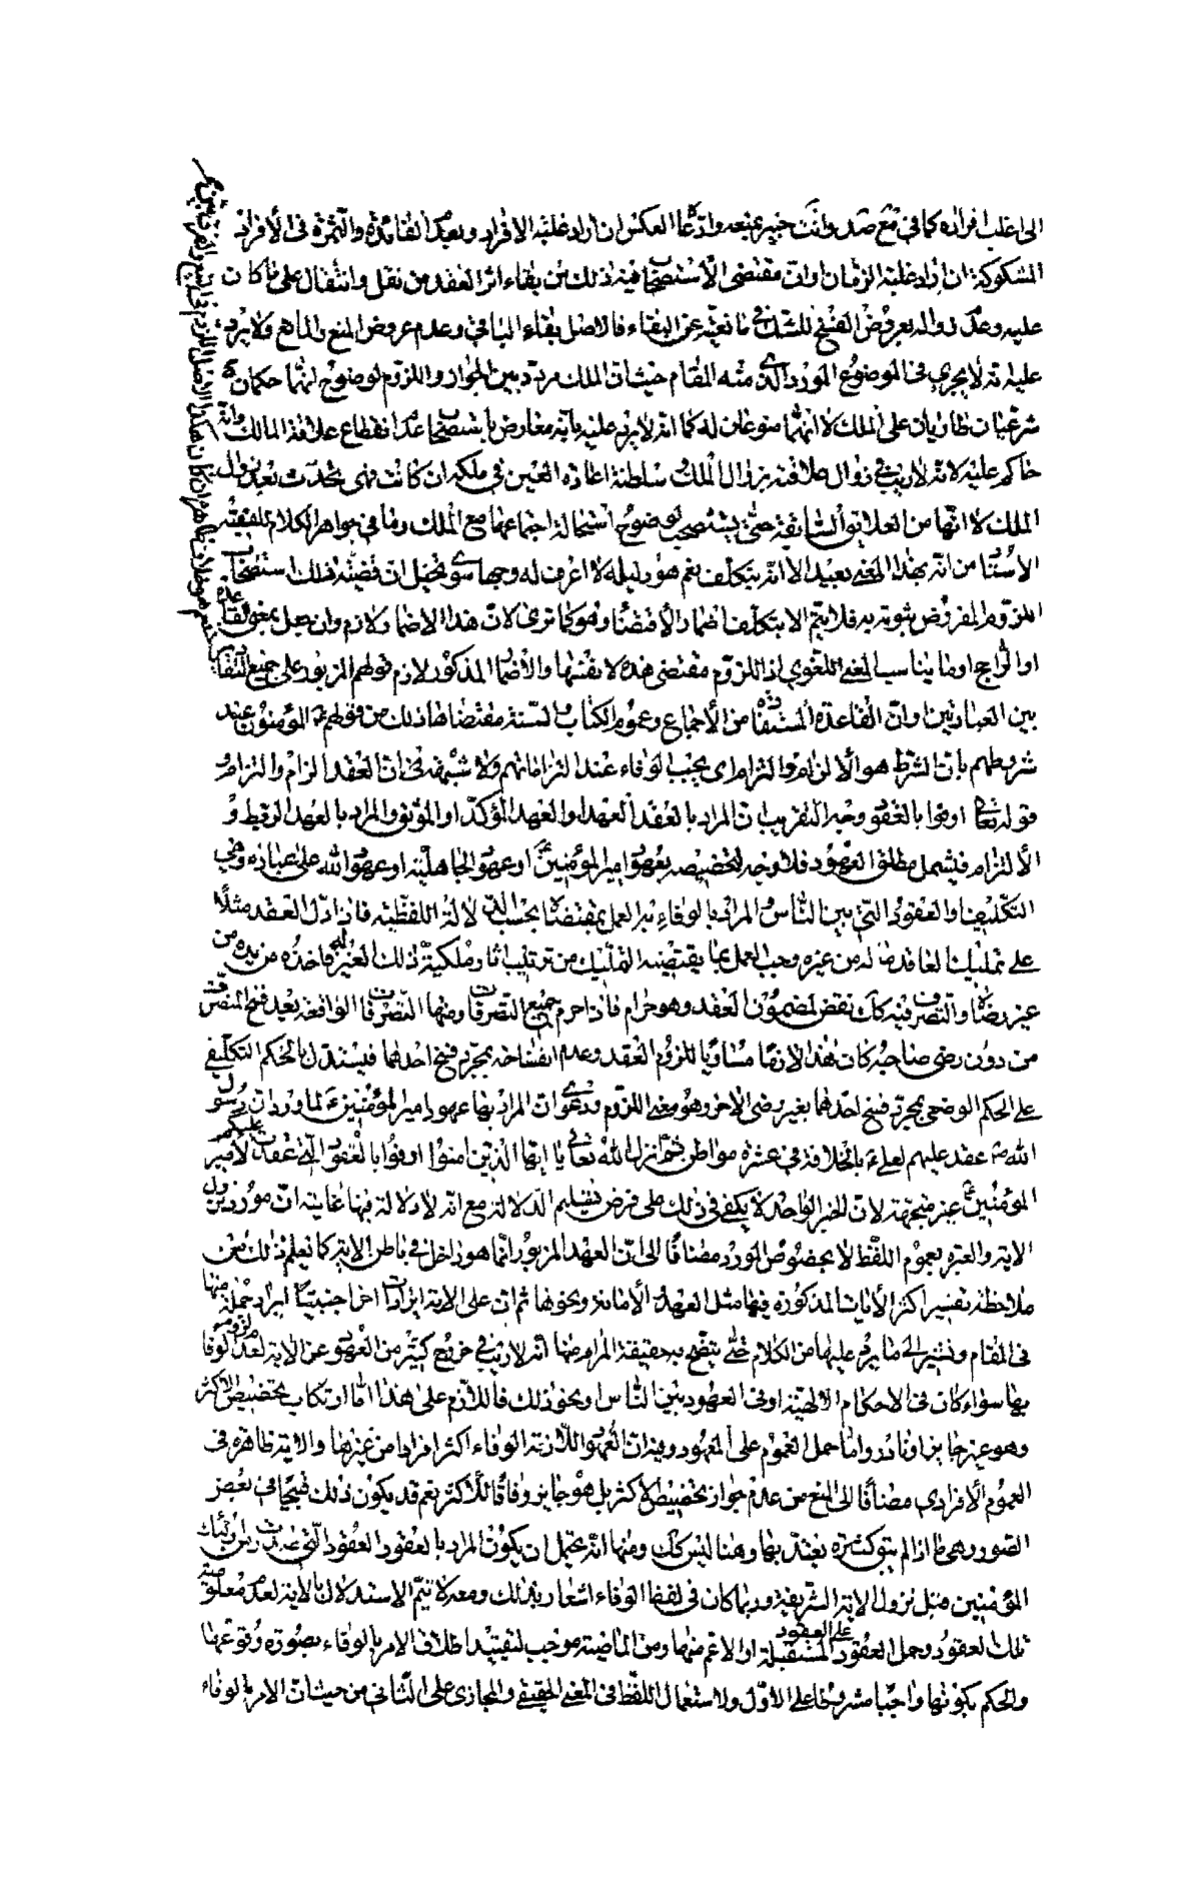 الى اغلب افراده كما في مع صد وانت خبير بمنعه وادعا العكس ان اراد غلبة الافراد وبعد الفائدة والثمرة في الافراد
المشكوكة ان اراد غلبة الزمان او ان مقتضى الاستصحاب فيه ذلك من بقاء اثر العقد من نقل وانتقال على ما كان
عليه وعدم زواله بعروض الفسخ للشك في ما نعيته عن البقاء فالاصل بقاء الباقي وعدم عروض المنع والمانع ولا يرد
عليه انه لا يجري في الموضوع المورد الذي منه المقام حيث ان الملك مردد بين الجواز واللزوم لوضوح انهما حكمان
شرعيان طاريان على الملك لا انهما منوعان له كما انه لا يرد عليه بانه معارض باستصحاب عدم انقطاع علاقة المالك وانه
حاكم عليه لانه لا ريب في زوال علاقته بزوال الملك وسلطنة اعادة العين في ملكه ان كانت فهي تحدث بعد زوال
الملك لا انها من العلائق السابقة حتى يستصحب لوضوح استحالة اجتماعها مع الملك وما في جواهر الكلام للفقيه
الاستاد من انه بهذا المعنى بعيد الا انه بتكلف نعم هو دليله لا اعرف له وجها سوى تخيل ان قضيته ذلك استصحاب
اللزوم المفروض ثبوته به فلا يتم الا بتكلف اضمار الاقتضاء وهو كما ترى لان هذا الاضمار لازم وان جعل بمعنى القاعدة
او الراجح او ما يناسب المعنى اللغوي اذ اللزوم مقتضى هذه لا نفسها والاضمار المذكور لازم قولهم المزبور على جميع التفاسير
بين العبارتين وان القاعدة المستفادة من الاجماع وعموم الكتاب والسنة مقتضاها ذلك من قولهم المؤمنون عند
شروطهم بان الشرط هو الالزام والتزام اى يجب الوفاء عند التزاماتهم ولا شبهة في ان العقد الزام والتزام و
قوله تعالى اوفوا بالعقود وجه التقريب ان المراد بالعقد العهد او العهد المؤكد او الموثق والمراد بالعهد الربط و
الالتزام فيشمل مطلق العهود فلا وجه لتخصيصه بعهود امير المؤمنين او عهود الجاهلية او عهود الله على عباده وهي
التكليف والعقود التي بين الناس والمراد بالوفاء به العمل بمقتضاه بحسب الدلالة اللفظية فاذا دل العقد مثلا
على تمليك العاقد ماله من غيره وجب العمل بما يقتضيه التمليك من ترتيب اثار ملكية ذلك الغير له فاخذه من يده من
غير رضاه والتصرف فيه كك نقض لمضمون العقد وهو حرام فاذا حرم جميع التصرفات ومنها التصرفات الواقعة بعد فسخ المتصرف
من دون رضى صاحبه كان هذا لازما مساويا للزوم العقد وعدم انفساخه بمجرد فسخ احدهما فيستدل بالحكم التكليفي
على الحكم الوضعي بمجرد فسخ احدهما بغير رضى الاخر وهو معنى اللزوم ودعوى ان المراد بها عهود امير المؤمنين لما ورد ان رسول
الله عقد عليهم لعلي بالخلافة في عشرة مواطن ثم انزل الله تعالى يا ايها الذين امنوا اوفوا بالعقود التي عقدت عليكم لامير
المؤمنين غير متجهة لان الخبر الواحد لا يكفي في ذلك على فرض تسليم الدلالة مع انه لا دلالة فيها غايته ان مورد نزول
الاية والعبرة بعموم اللفظ لا بخصوص المورد مضافا الى ان العهد المزبور انما هو داخل في باطن الاية كما يعلم ذلك من
ملاحظة تفسير اكثر الايات المذكورة فيها مثل العهد والامانة ونحوها ثم ان على الاية ايرادات اخر اجنبيتنا ايراد جملة منها
في المقام ونشير الى ما يرد عليها من الكلام حتى يتضح به حقيقة المرام منها انه لا ريب في خروج كثير من العهود عن الاية لعدم لزوم الوفا
بها سواء كان في الاحكام الالهية او في العهود بين الناس او نحو ذلك فاللازم على هذا اما ارتكاب تخصيص الاكثر
وهو غير جايز او نادر واما حمل العموم على المعهود وفيه ان العهود اللازمة الوفاء اكثر افرادا من غيرها والاية ظاهرة في
العموم الافرادي مضافا الى المنع من عدم جواز تخصيص الاكثر بل هو جايز وفاقا للاكثر نعم قد يكون ذلك قبيحا في بعض
الصور وهي ما اذا لم يبق كثرة يعتد بها وهنا ليس كك ومنها انه يحتمل ان يكون المراد بالعقود العقود التي
المؤمنين قبل نزول الاية الشريفة وربما كان في لفظ الوفاء اشعار بذلك ومعه لا يتم الاستدلال بالاية لعدم معلومية
تلك العقود وحمل العقود على العقود المستقبلة او الاعم منها ومن الماضية موجب لتقييد اطلاق الامر بالوفاء بصورة وقوعها
والحكم بكونها واجبا مشروطا على الاول ولاستعمال اللفظ في المعنى الحقيقي والمجازي على الثاني من حيث ان الامر بالوفاء